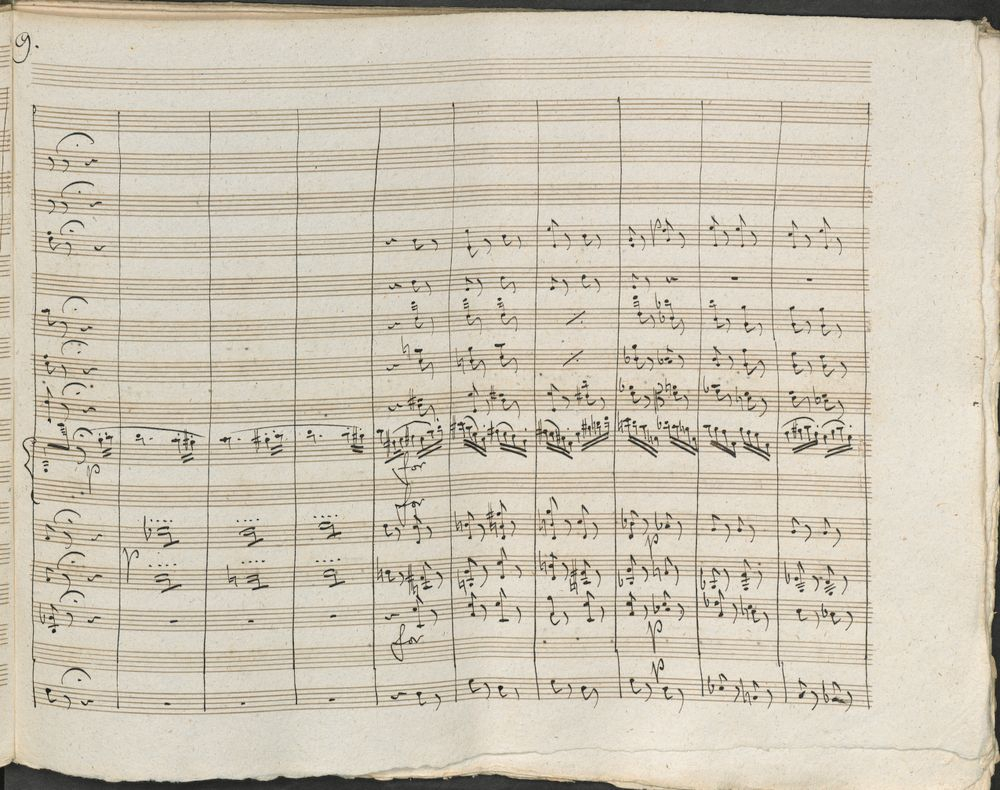 9.
p
for
for
p
p
for
p
p
p